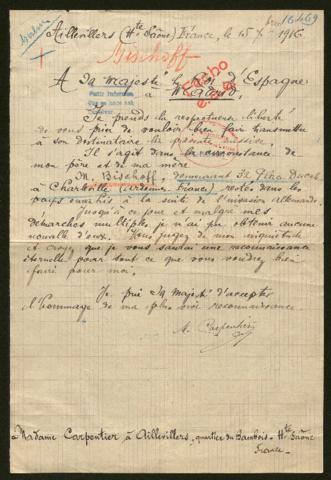 16469
Aillevillers (Hte Saône) France, le 15 X 1916
Bischoff
A Sa Majesté le Roi d'Espagne
à Madrid
Je prends la respectueuse liberté
de vous prier de vouloir bien faire transmettre
à son destinataire la présente missive.
Il s'agit dans la circonstance de
mon père et de ma mère.
M. Bischoff, demeurant
à Charleville (Ardennes-France) restés dans les
pays envahis à la suite de l'invasion allemande.
Jusqu'à ce jour et malgré mes
démarches multiples, je n'ai pu obtenir aucune
nouvelle d'eux. Vous jugez de mon inquiétude
et croyez que je vous saurai une reconnaissance
éternelle pour tout ce que vous voudrez bien
faire pour moi.
Je prie Sa Majesté d'accepter
l'hommage de ma plus vive reconnaissance
A. Carpentier
Madame Carpentier à Aillevillers, quartier du Bambois - Hte Saône
France -